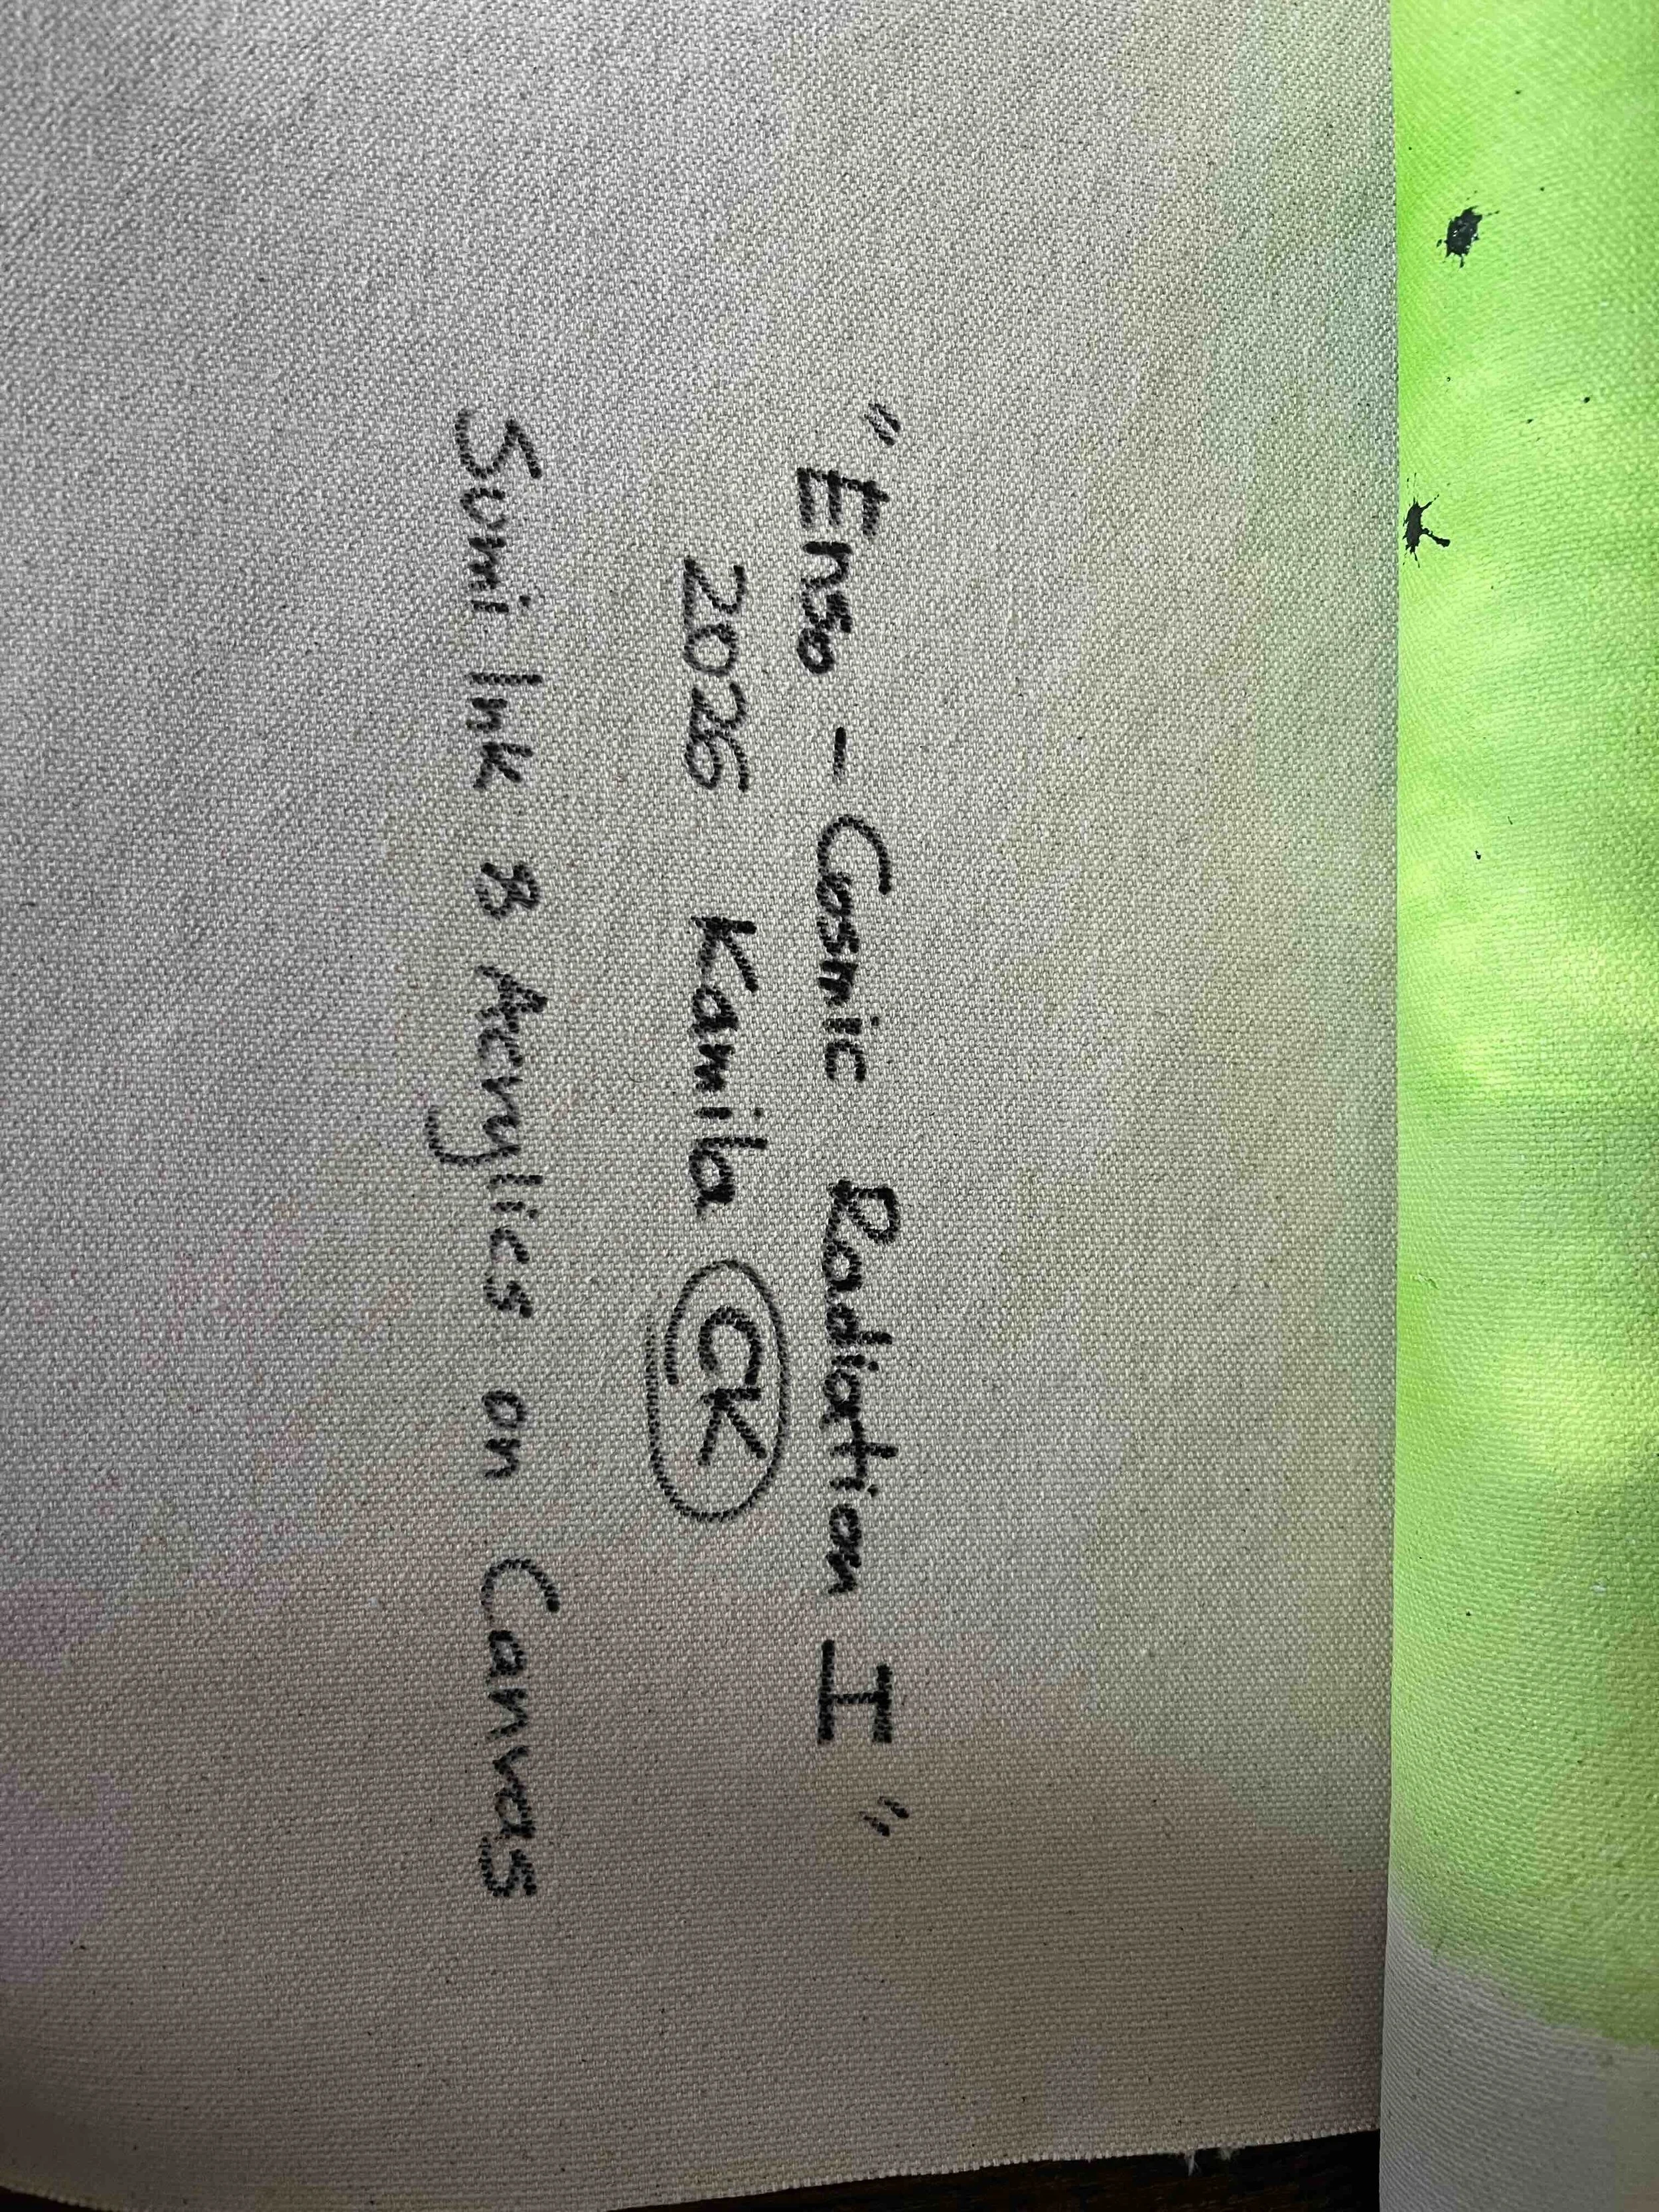 "Enso - Cosmic Radiation I"
2026 Kamila CK
Sumi Ink & Acrylics on Canvas